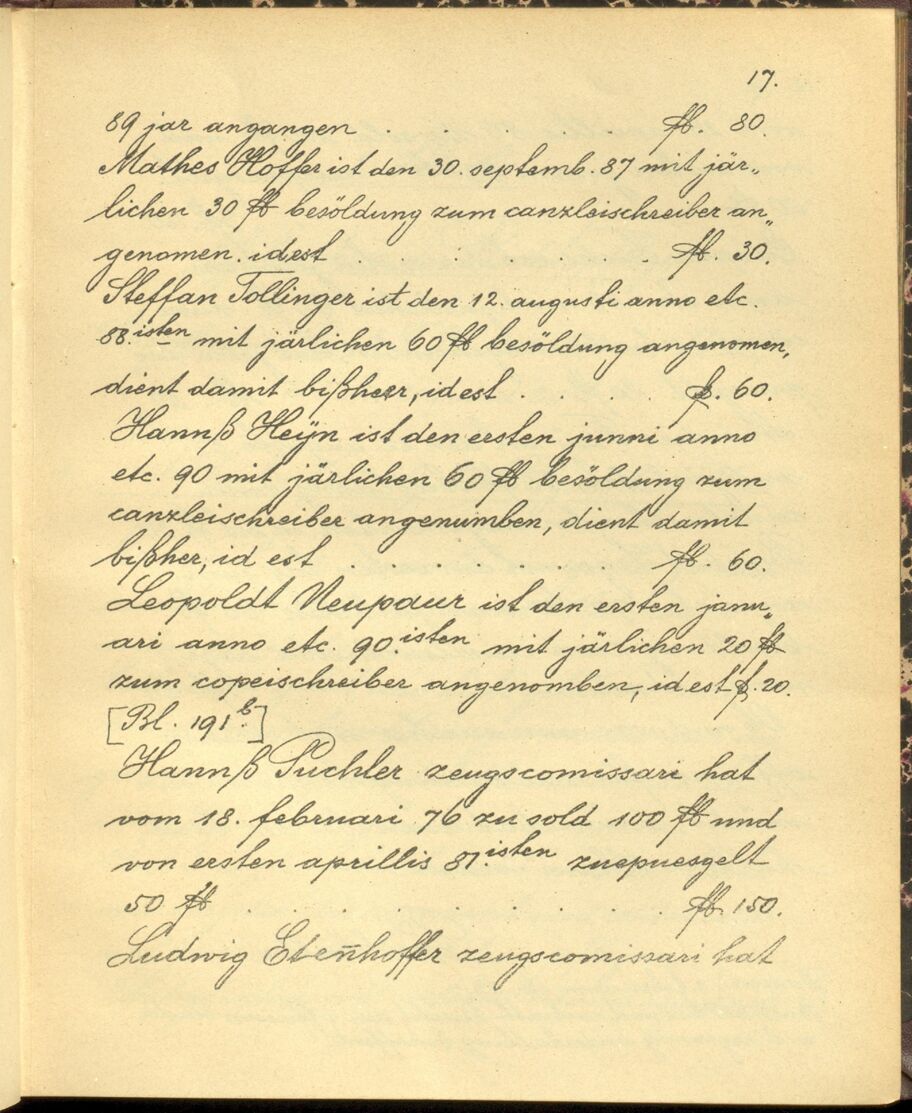 17.
89 jar angangen . . . . fl. 80.
Mathes Hoffer ist den 30. septemb. 87 mit jär„
lichen 30 fl besöldung zum canzleischreiber an„
genomen. idest . . . . . fl. 30.
Steffan Tollinger ist den 12. augusti anno etc.
88.isten mit järlichen 60 fl besöldung angenomen,
dient damit bißherr, idest . . . . fl. 60.
Hannß Heÿn ist den ersten junni anno
etc. 90 mit järlichen 60 fl besöldung zum
canzleischreiber angenumben, dient damit
bißher, id est . fl. 60.
Leopoldt Neupaur ist den ersten janu„
ari anno etc. 90.isten mit järlichen 20 fl
zum copeischreiber angenomben, id est fl. 20.
[Bl. 191b.]
Hannß Puchler zeugscomissari hat
vom 18. februari 76 zu sold 100 fl und
von ersten aprillis 81.isten zuepuesgelt
50 fl . . . . . . . . fl. 150.
Ludwig Eten̄hoffer zeugscomissari hat